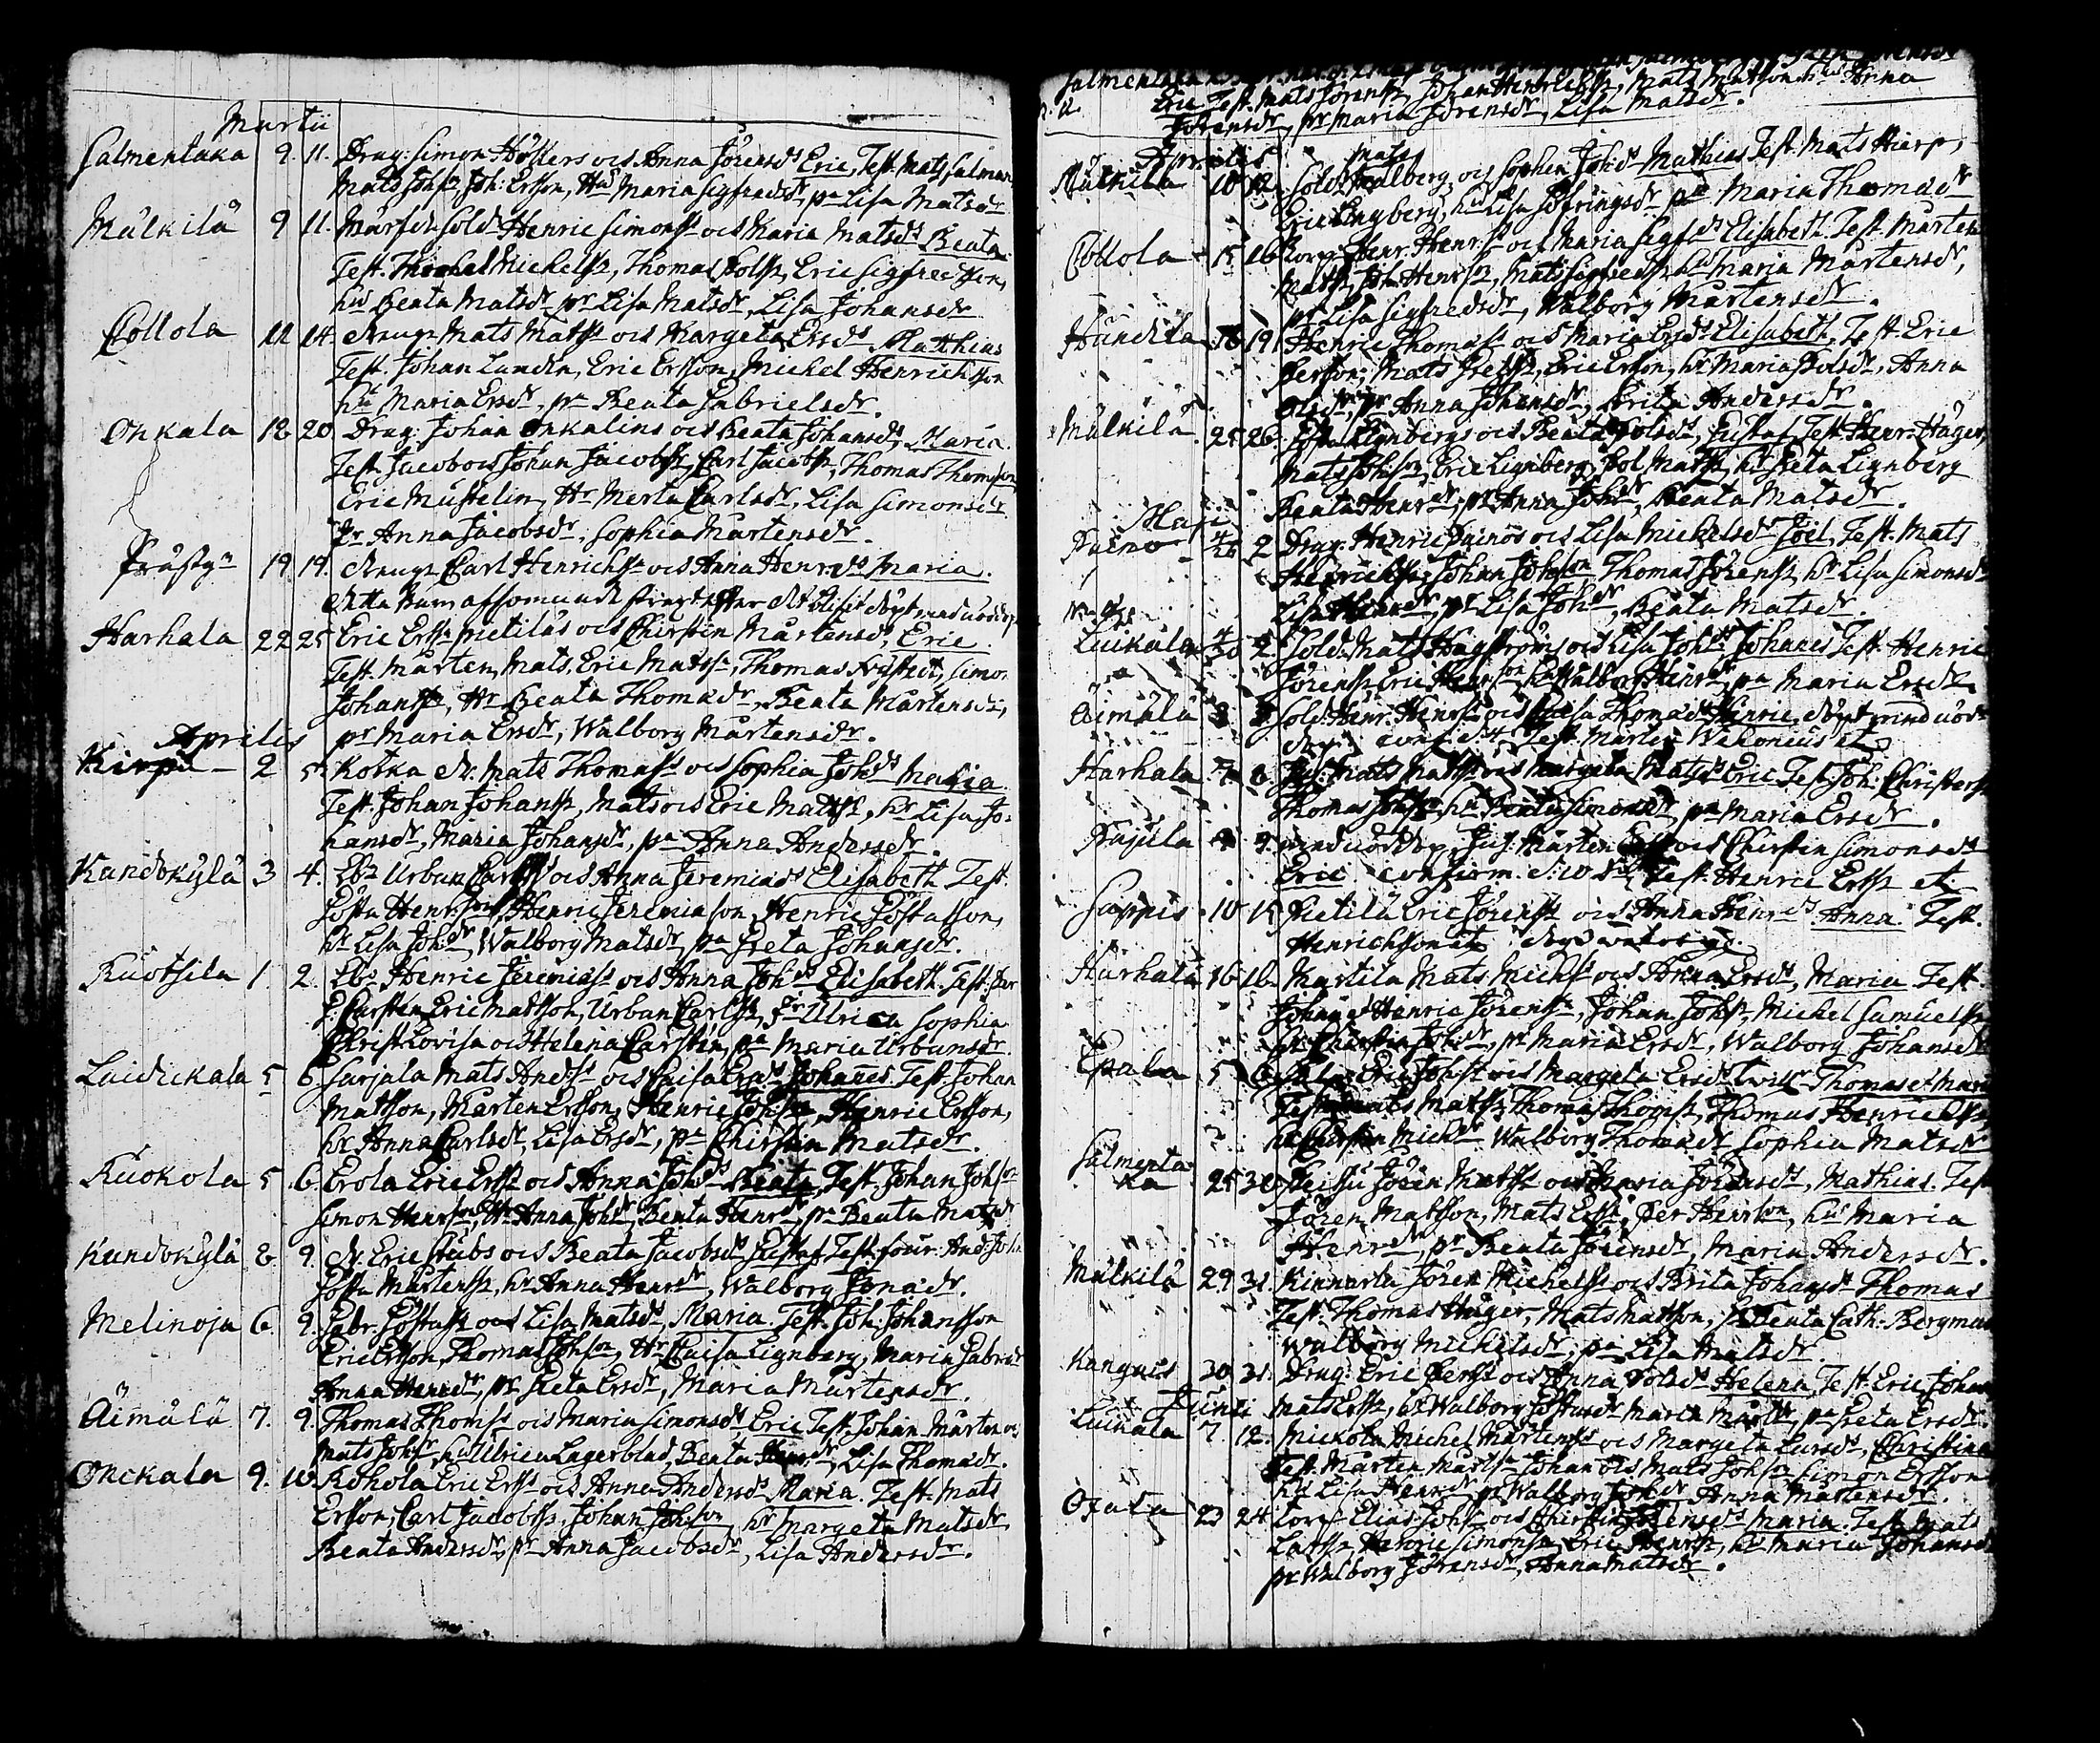 Martii
Salmentaka 9. 11. Drag: Simon Höökers ocs Anna Jörensds Eric, Test. Mats Salmen
Mats Johss, Joh: Ersson, Hu Maria Sigfredsdr, pa Lisa Matsdr
Mälkilä 9 11. Simonss ocs Maria Matsds Beata
Test. Michel Michelss, Thomas Polss, Eric Sigfredsson,
hu Beata Matsdr pr Lisa Matsdr, Lisa Johansdr
Collola 11 14. Mats Matss ocs Margeta Ersds Matthias
Test. Johan Lundén, Eric Ersson, Michel Henrichsson
hu Maria Ersdr, pa Beata Gabrielsdr.
Onkala 18 20 Drag: Johan Onkalins ocs Beata Johansds, Maria.
Test. Jacob ocs Johan Jacobss, Carl Jacobss, Thomas Thomsson,
Eric Mustelin, Hr Merta Carlsdr, Lisa Simonsdr
Pr Anna Jacobsdr, Sophia Mårtensdr.
19. 19. Carl Henrichss ocs Anna Henrds Maria.
Harhala 22 25 Eric Erss Pietiläs ocs Chirstin Mårtensds, Eric
Test. Mårten, Mats, Eric Matss, Thomas Nystedt, Simon
Johanss, Hr Beata Thomædr, Beata Mårtensdr,
pr Maria Ersdr, Walborg Mårtensdr.
Aprilis
Kirpu 2 5 Kotka Mats Thomass ocs Sophia Johds Maria.
Test. Johan Johanss, Mats ocs Eric Matss, hr Lisa Jo-
hansdr, Maria Johansdr, pa Anna Andersdr.
Kandokylä 3 4. Urban Carlss ocs Anna Jeremiæds Elisabeth Test.
Gösta Henrsson, Henric Jeremiæson, Henric Göstasson,
hr Lisa Johdr, Walborg Matsdr, pa Greta Johansdr.
Kuotsila 1. 2. Henric Jeremiæss ocs Anna Johds Elisabeth. Test:
Carsten, Eric Matsson, Urban Carlss, Fr Ulrica Sophia
Christ. Lovisa ocs Helena Carstén, pa Maria Urbansdr.
Laidickala 5 6. Sarjala Mats Andss ocs Caisa Ersds Johañes. Test. Johan
Matsson, Mårten Ersson, Henric Johss, Henric Ersson,
hr Anna Carlsdr, Lisa Ersdr, pa Chirstin Matsdr.
Kuokola 5 6. Erola Eric Erss ocs Anna Johds Beata, Test. Johan Johsson
Simon Henrsson, Hr Anna Johdr, Beata Henrdr, pr Beata Matsdr
Kandokylä 8 9. Eric Stubs ocs Beata Jacobsds Gustaf, Test. And: Joh
Gösta Mårtenss, hr Anna Henrdr, Walborg Jonædr.
Melinoja 6. 9. Gabr. Göstass ocs Lisa Matsds, Maria. Test. Joh: Johansson
Eric Ersson, Thomas Johsson, Hr Caisa Lignberg, Maria Gabrdr
Anna Henrdr, pr Greta Ersdr, Maria Mårtensdr.
Äimälä 7. 9. Thomas Thomss ocs Maria Simonsds, Eric Test. Johan Mårten ocs
Mats Johsr, hu Ulrica Lagerblad, Beata Henrdr, Lisa Thomædr.
Onckala 9. 10. Rohola Eric Erss ocs Anna Andersds Maria. Test. Mats
Ersson, Carl Jacobss, Johan Johsson, hr Margeta Matsdr
Beata Andersdr, pr Anna Jacobsdr, Lisa Andersdr.
Salmentaka
Eric Test. Mats Jörenss, Johan Henrichss, Mats Matsson, hu Anna
Jörensdr, pr Maria Jörensdr, Lisa Matsdr.
Aprilis
Mälkilä 10 12. Sold: Mats Malberg ocs Sophia Johds Mathias Test. Mats Hierp,
Eric Lignberg, hu Lisa pa Maria Thomædr
Collola 15 16 Korp. Henr: Henrss ocs Maria Sigfds Elisabeth. Test. Mårten
Matss, Joh: Henrsson, Mats Sigfredss, hu Maria Mårtensdr,
pr Lisa Sigfredsdr, Walborg Mårtensdr.
Hundila 18 19 Henric Thomass ocs Maria Ersds Elisabeth, Test. Eric
Persson, Mats Grelss, Eric Ersson, hr Maria Polsdr, Anna
Olsdr, pr Anna Johansdr, Brita Andersdr.
Mälkilä 25 26. Gösta Lignbergs ocs Beata Polsds, Gustaf, Test. Henr: Häger,
Mats Johsson, Eric Lignberg, Pol Matss, hr Greta Lignberg
Beata Henrdr, pr Anna Johdr, Beata Matsdr.
Maji
Paino 4/26 2 Drag. Henric Painos ocs Lisa Michelsds Joël, Test. Mats
Henrichss, Johan Johsson Thomas Jörenss, hr Lisa Simonsdr
Lisa Henrdr, pr Lisa Johdr, Beata Matsdr.
Luikala 4/30 2 Sold. Mats Hagströms ocs Lisa Johds Johanes Test. Henric
Jörenss, Eric Henrsson, hr Walborg Henrdr, pa Maria Ersdr
Äimälä 3 3. Sold. Henr: Henrss ocs Caisa Thomæds Henric, döpt
conf. Test. Mårten Wenonius etc
Harhala 7 8. Mats Matss ocs Margeta Matsds Eric Test. Joh: Christerss
Thomas Johss, hr Beata Simonsdr, pa Maria Ersdr.
9. Mårten Erss ocs Chirstin Simonsds
Eric confirm. Test. Henric Erss etc
Sappis 10 15 Pietilä Eric Jörenss ocs Anna Henrds Anna Test.
Henrichsson etc
Harhala 16 16. Martila Mats Michss ocs Anna Ersds, Maria Test.
Johan et Henric Jörenss, Johan Johss, Michel Samuelss
hr Chirstin Johdr, pr Maria Ersdr, Walborg Johansdr
Epala 5 6 Eric Johss ocs Margeta Ersds Thomas et Maria
Test. Mats Matss, Thomas Thomss, Thomas Henrichss,
hr Chirstin Michdr Walborg Thomædr Sophia Matsdr
Salmenta
ka 25 30. Jören Matss ocs Maria Jörensds, Mathias. Test
Jören Matsson, Mats Erss, Per Henrsson, hu Maria
Henrdr, pr Beata Jörensdr, Maria Andersdr.
Mälkilä 29. 31. Kinnarla Jören Michelss ocs Brita Johansds Thomas
Test. Thomas Häger, Mats Matsson, Beata Cath: Bergman
Walborg Michelsdr, pa Lisa Matsdr.
Kangais 30 31. Drag: Eric Perss ocs Anna Polsds Helena, Test. Eric Johan
Junii Mats Erss, hr Walborg Göstasdr Maria Mårtdr, pa Greta Ersdr.
Luikala 7. 12. Mickola Michel Mårtenss ocs Margeta Larsds, Christina
Test. Mårten Mårtss Johan ocs Mats Johss Simon Ersson
hu Lisa Henrdr pr Walborg Johdr Anna Mårtensdr.
23 24 Korp: Elias Johss ocs Chirstin Jörensds Maria. Test. Mats
Larss, Henric Simonss, Eric Henrss, hu Maria Johansdr
pr Walborg Jörensdr, Anna Matsdr.